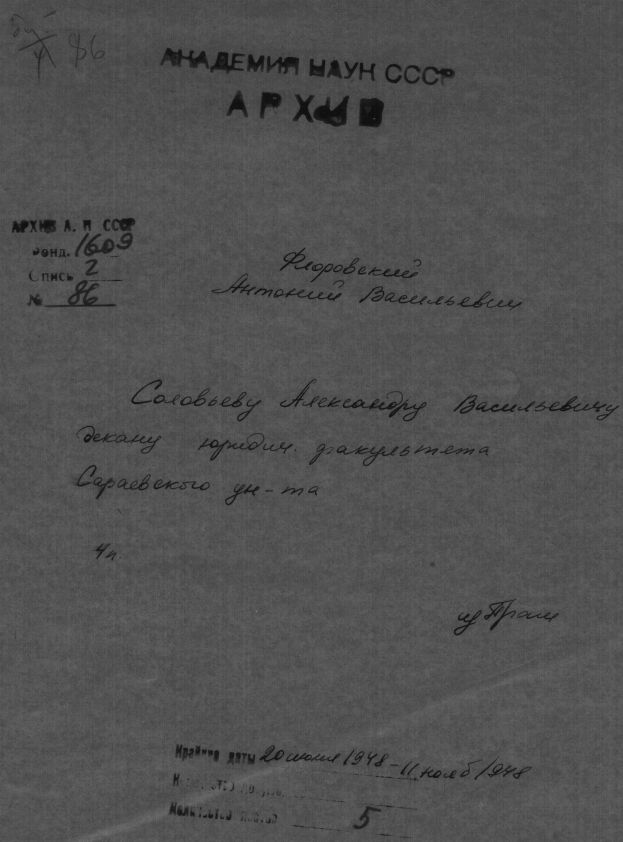 86
АКАДЕМИЯ НАУК СССР
АРХИВ
АРХИВ А. Н СССР
Фонд. 1609
Опись 2
№ 86
Флоровский
Антоний Васильевич
Соловьеву Александру Васильевичу
декану юридич. факультета
Сараевского ун-та
4 п.
из Праги
Крайние даты 20 июня 1948 - 11 нояб 1948
Количество листов 5